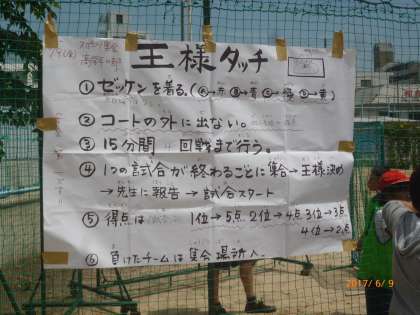 王様タッチ
① ゼッケンを着る。(Ⓐ→赤 Ⓑ→青 Ⓒ→緑 Ⓓ→黄)
② コートの外に出ない。
③ 15分間 4回戦まで行う。
④ 1つの試合が終わるごとに集合→王様決め
→先生に報告→試合スタート
⑤ 得点は 1位→5点 2位→4点 3位→3点
4位→2点
⑥ 負けたチームは集合場所へ。
2017/6/9